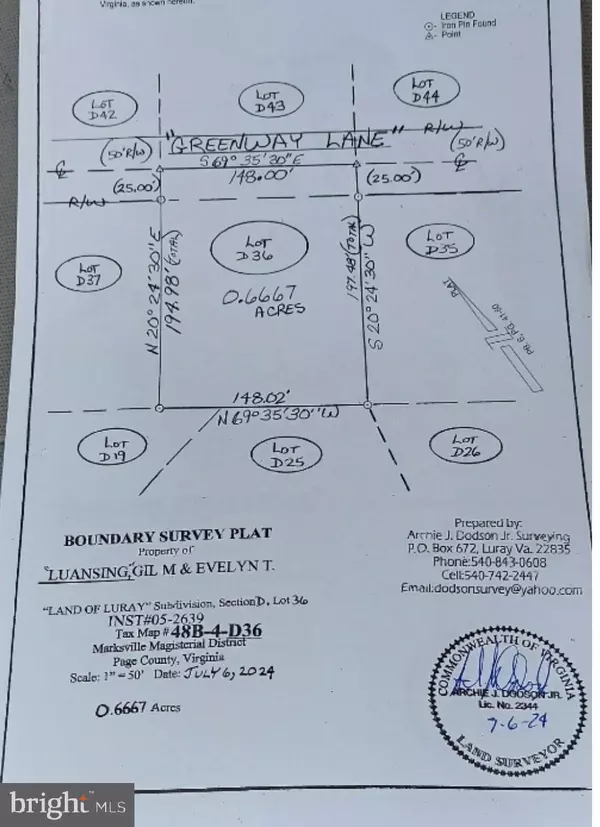 Virginia, as shown hereon.
LEGEND
⊙- Iron Pin Found
△- Point
LOT
D42
LOT
D43
LOT
D44
"GREENWAY LANE"
R/W
(50' R/W)
(50' R/W)
S 69° 35' 30" E
148.00'
(25.00')
(25.00')
R/W
LOT
D37
N 20° 24' 30" E
194.98' (TOTAL)
LOT
D36
0.6667
ACRES
197.48' (TOTAL)
S 20° 24' 30" W
LOT
D35
PLAT
PB. 6, PG. 41-50
148.02'
N 69° 35' 30" W
LOT
D19
LOT
D25
LOT
D26
BOUNDARY SURVEY PLAT
Property of
LUANSING, GIL M & EVELYN T.
"LAND OF LURAY" Subdivision, Section D, Lot 36
INST#05-2639
Tax Map # 48B-4-D36
Marksville Magisterial District
Page County, Virginia
Scale: 1" = 50' Date: JULY 6, 2024
0.6667 Acres
Prepared by:
Archie J. Dodson Jr. Surveying
P.O. Box 672, Luray Va. 22835
Phone:540-843-0608
Cell:540-742-2447
Email:dodsonsurvey@yahoo.com
COMMONWEALTH OF VIRGINIA
ARCHIE J. DODSON JR.
Lic. No. 2344
7-6-24
LAND SURVEYOR
bright MLS